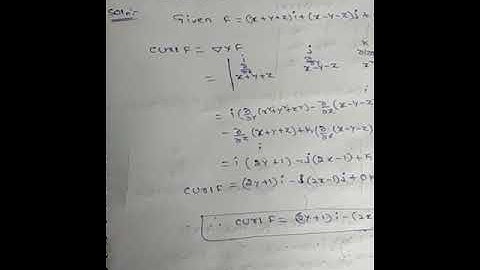 Soln:-
Given F = (x+y+z)i + (x-y-z)j +
curl F = ∇×F
i j k
= | ∂/∂x ∂/∂y ∂/∂z
x+y+z x-y-z x²
= i(∂/∂y(x²+y²+z²) - ∂/∂z(x-y-z
- ∂/∂z(x+y+z) + k(∂/∂x(x-y-z)
= i(2y+1) - j(2x-1) + k
curl F = (2y+1)i - (2x-1)j + 0k
∴ curl F = (2y+1)i - (2x